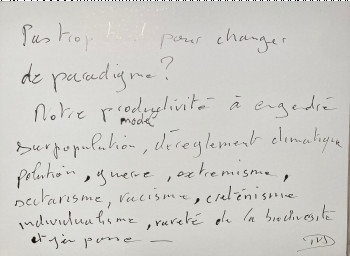 Pas trop tard pour changer
de paradigme?
Notre productivité à engendré
mode
surpopulation, dérèglement climatique
pollution, guerre, extremisme,
sectarisme, racisme, creténisme
individualisme, rareté de la biodiversité
et j'en passe —